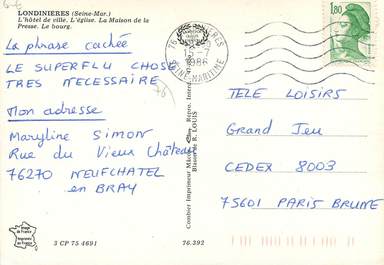 LONDINIERES (Seine-Mar.)
L'hôtel de ville. L'église. La Maison de la
Presse. Le bourg.
La phrase cachée
LE SUPERFLU CHOSE
TRES NECESSAIRE
Mon adresse
Maryline SIMON
Rue du Vieux Château
76270 NEUFCHATEL
en BRAY
3 CP 75 4691
76.392
Combier Imprimeur Mâcon
Blason de R. LOUIS
SEINE-MARITIME
1986
1,80
TELE LOISIRS
Grand Jeu
CEDEX 8003
75601 PARIS BRUNE